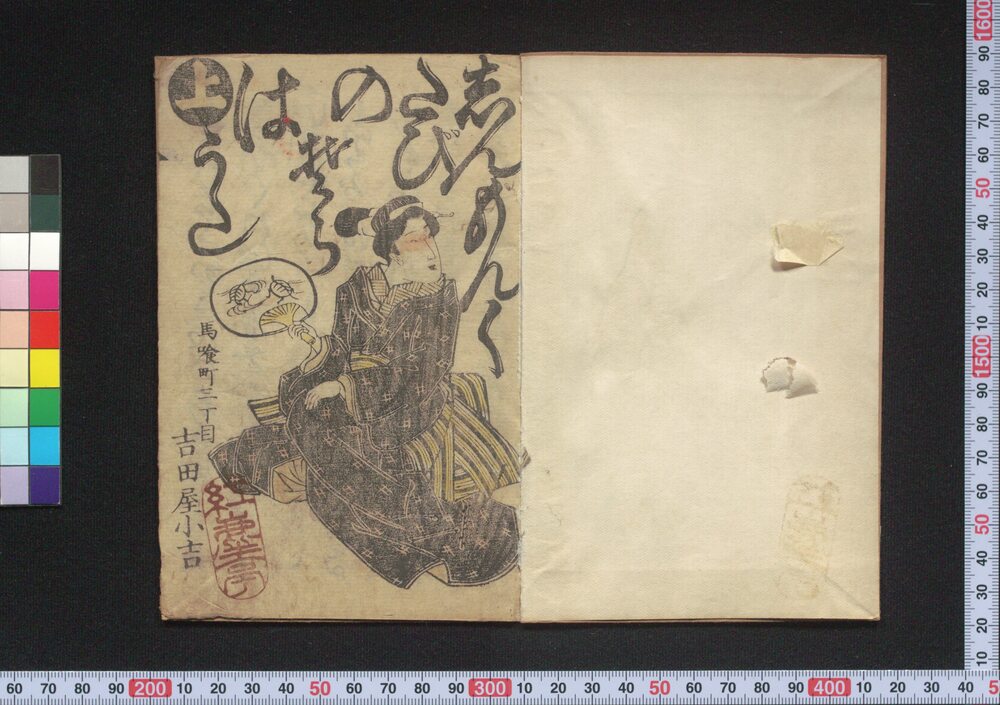 志んもんく
とび
の
そら
はうた
上
馬喰町三丁目
吉田屋小吉
60 70 80 90 200 10 20 30 40 50 60 70 80 90 300 10 20 30 40 50 60 70 80 90 400 10 20 30 40 5
1600 90 80 70 60 50 40 30 20 10 1500 90 80 70 60 50 40 30 20 10